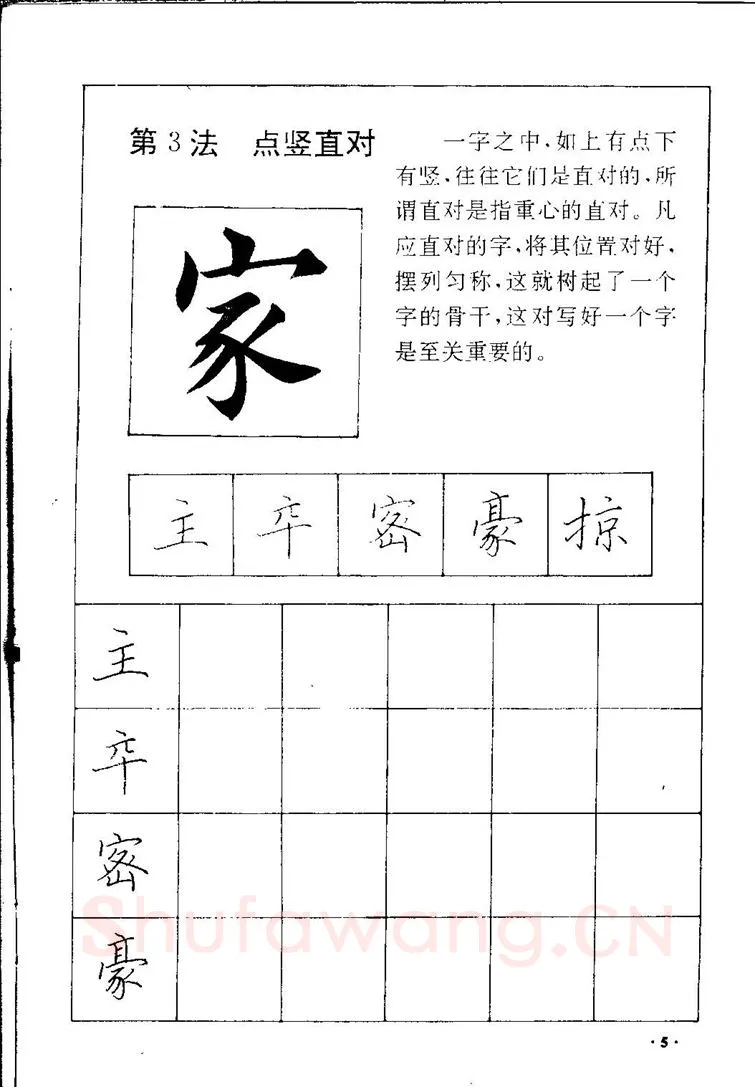 第3法 点竖直对
一字之中,如上有点下
有竖,往往它们是直对的,所
谓直对是指重心的直对。凡
应直对的字,将其位置对好,
摆列匀称,这就树起了一个
字的骨干,这对写好一个字
是至关重要的。
家
主 卒 密 豪 掠
主
卒
密
豪
Shufawang.CN
·5·